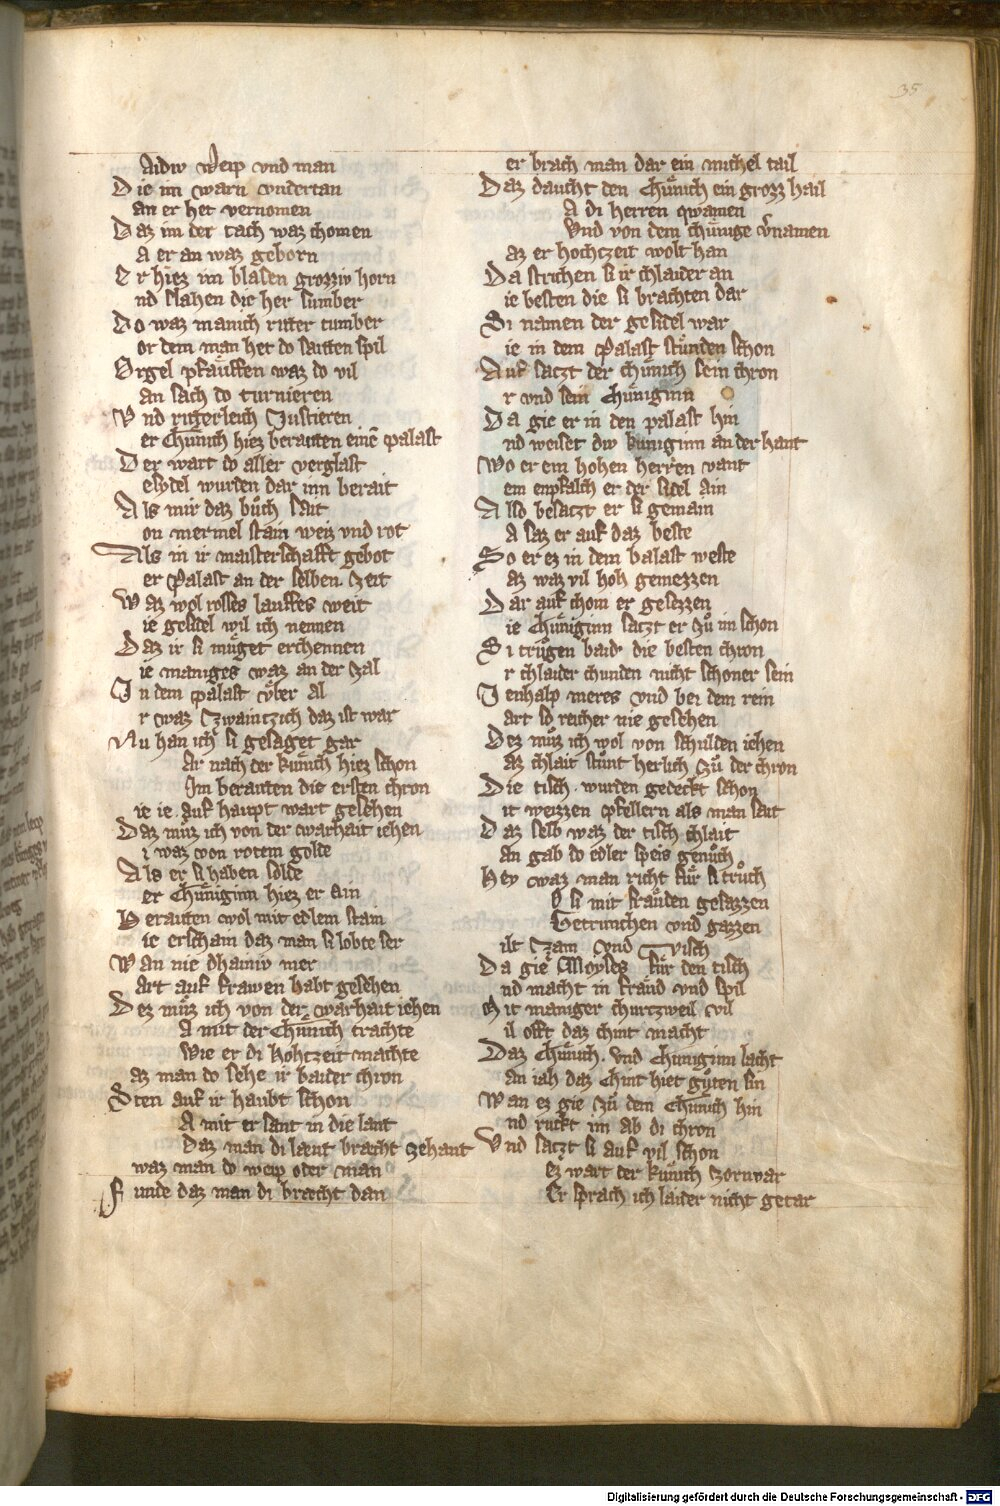 35
Aidiv weip vnd man
Die im warn vndertan
an er het vernomen
Daz im der tach waz chomen
A er an waz geborn
Er hiez im blasen grozziv horn
nd slahen die her sumber
Do waz manich ritter tumber
or dem man het do saitten spil
Orgel pfäuffen waz do vil
an sach do turnieren
Vnd ritterleich Justieren
er Chünich hiez beraitten eine palast
Der wart do aller verglast
esydel wurden dar inn berait
Als mir daz büch sait
on mermel stain weiz vnd rot
Als in ir maisterschafft gebot
er Palast an der selben zeit
Waz wol rosses lauffes weit
ie gesidel wil ich nennen
Daz ir si müget erchennen
ie maniges waz an der zal
In dem palast über al
r waz Zwaintzich daz ist war
Nu han ich si gesaget gar
Ar nach der künich hiez schon
Im beraiten die ersten chron
ie ie auf haupt wart gesehen
Daz müz ich von der warhait iehen
i waz von rotem golde
Als er si haben solde
er Chüniginn hiez er ain
Beraiten wol mit edlem stain
ie erschain daz man si lobte ser
Wan nie dhainiv mer
art auf frawen habt gesehen
Dez müz ich von der warhait iehen
A mit der Chünich trachte
Wie er di hohtzeit machte
az man do sehe ir baider chron
Sten auf ir haubt schon
A mit er sant in die lant
Daz man di laeut bracht zehant
waz man do weip oder man
Funde daz man di bræcht dan
er brach man dar ein michel tail
Daz daucht den Chünich ein grozz hail
A di herren qwamen
Vnd von dem chünige vernamen
az er hochtzeit wolt han
Da strichen si ir chlaider an
ie besten die si brachten dar
Si namen der gesidel war
ie in dem Palast stünden schon
Auf saczt der chünich sein chron
r vnd sein Chüniginn
Da gie er in den palast hin
nd weiset div küniginn an der hant
Wo er ein hohen herren vant
em enpfalch er der sidel ain
Also besaczt er si gemain
A saz er auf daz beste
So er ez in dem balast weste
az waz vil hoh gemezzen
Dar auf chom er gesezzen
ie Chüniginn saczt er zü im schon
Si trügen baid die besten chron
r chlaider chunden nicht schoner sein
Jenhalp meres vnd bei dem rein
art so reicher nie gesehen
Dez müz ich wol von schulden iehen
az chlait stünt herlich zü der chron
Die tisch wurden gedeckt schon
it weizzen pfellern als man sait
Daz selb waz der tisch chlait
an gab do edler speis genüch
Hey waz man richt für si trüch
O si mit fräuden gesazzen
Getrunchen vnd gazzen
ilt Zam vnd Visch
Da gie Moyses für den tisch
nd macht in fräud vnd spil
Mit maniger churtzweil vil
il offt daz chint macht
Daz Chünich vnd Chüniginn lacht
an iah daz Chint hiet güten sin
Wan ez gie zü dem Chünich hin
nd ruckt im ab di chron
Vnd saczt si auf vil schon
Ez wart der künich zornvar
Er sprach ich laider nicht getar
Digitalisierung gefördert durch die Deutsche Forschungsgemeinschaft - DFG